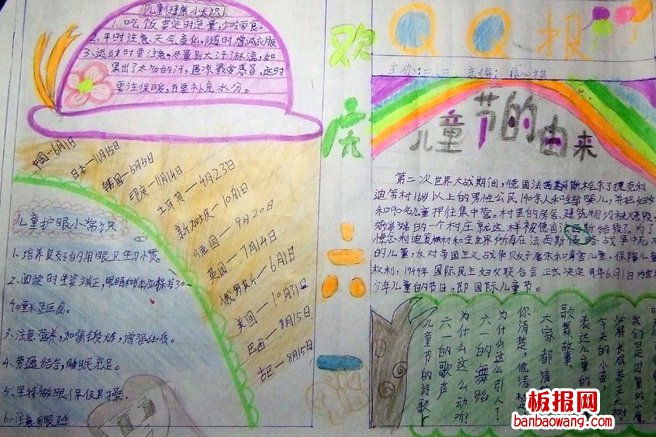 儿童健康小知识
1、吃饭要定时定量，少吃零食。
2、平时注意天气变化，随时增减衣服
3、运动时要注意，尽量别大汗淋漓，如
果出了太多的汗，遇凉最容易感，这时
要注保暖，并要补充水分。
中国—6月1日
日本—11月15日
韩国—5月5日
印度—11月14日
土耳其—4月23日
新加坡—10月1日
德国—9月20日
英国—7月14日
俄罗斯—6月1日
美国—10月21日
巴西—8月15日
古巴—8月15日
儿童护眼小常识
1、培养良好的用眼卫生习惯。
2、阅读时坐姿端正，眼睛和书本应保持30—
40厘米距离。
3、注意营养，加强锻炼，增强体质。
4、劳逸结合，睡眠充足。
5、坚持做眼保健操。
6、注意用眼卫生
欢度六一
QQ报
主办：二
儿童节的由来
第二次世界大战期间，德国法西斯枪杀了捷克利
迪策村16岁以上的男性公民140余人和全部婴儿，并把妇女
和90名儿童押往集中营。村里的房舍、建筑物均被烧毁，
好端端的一个村庄就这样被德国法西斯给毁了。为了
悼念利迪策村和全世界所有在法西斯侵略战争中死难
的儿童，反对帝国主义战争贩子虐杀和毒害儿童，保障儿童
权利，1949年国际民主妇女联合会正式决定每年6月1日为全世
界儿童的节日，即国际儿童节。
儿童节的诗歌
六一的歌声
为什么这么动听？
六一的舞蹈
为什么这么引人？
你清楚，他清楚
大家都清
歌舞故事
表达儿童的
今天的小苗
必将长成参天大树
我们是出里的
板报网
banbaowang.com